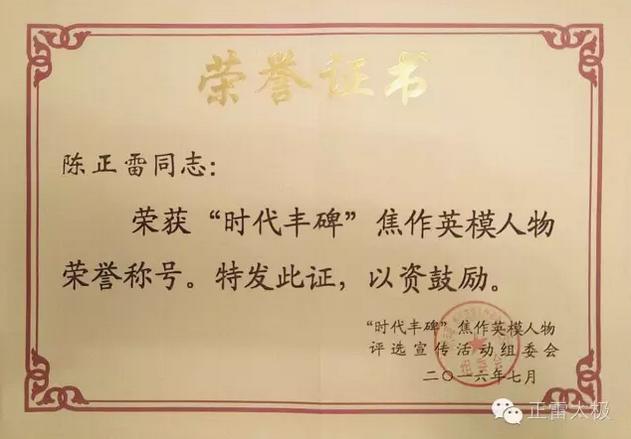 荣誉证书
陈正雷同志：
荣获“时代丰碑”焦作英模人物
荣誉称号。特发此证，以资鼓励。
“时代丰碑”焦作英模人物
评选宣传活动组委会
二〇一六年七月
正雷太极